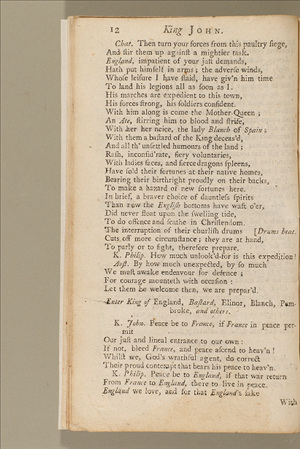 12 King JOHN.
Chat. Then turn your forces from this paultry siege,
And stir them up against a mightier task.
England, impatient of your just demands,
Hath put himself in arms; the adverse winds,
Whose leisure I have staid, have giv'n him time
To land his legions all as soon as I.
His marches are expedient to this town,
His forces strong, his soldiers confident.
With him along is come the Mother-Queen;
An Ate, stirring him to blood and strife,
With her her neice, the lady Blanch of Spain:
With them a bastard of the King deceas'd,
And all th' unsettled humours of the land:
Rash, inconsid'rate, fiery voluntaries,
With ladies faces, and fierce dragons spleens,
Have sold their fortunes at their native homes,
Bearing their birthright proudly on their backs,
To make a hazard of new fortunes here.
In brief, a braver choice of dauntless spirits
Than now the English bottoms have waft o'er,
Did never float upon the swelling tide,
To do offence and scathe in Christendom.
The interruption of their churlish drums [Drums beat.
Cuts off more circumstance; they are at hand,
To parly or to fight, therefore prepare.
K. Philip. How much unlook'd-for is this expedition!
Aust. By how much unexpected, by so much
We must awake endeavour for defence;
For courage mounteth with occasion:
Let them be welcome then, we are prepar'd.
Enter King of England, Bastard, Elinor, Blanch, Pem-
broke, and others.
K. John. Peace be to France, if France in peace per-
mit
Our just and lineal entrance to our own:
If not, bleed France, and peace ascend to heav'n!
Whilst we, God's wrathful agent, do correct
Their proud contempt that bears his peace to heav'n.
K. Philip. Peace be to England, if that war return
From France to England, there to live in peace.
England we love, and for that England's sake
With